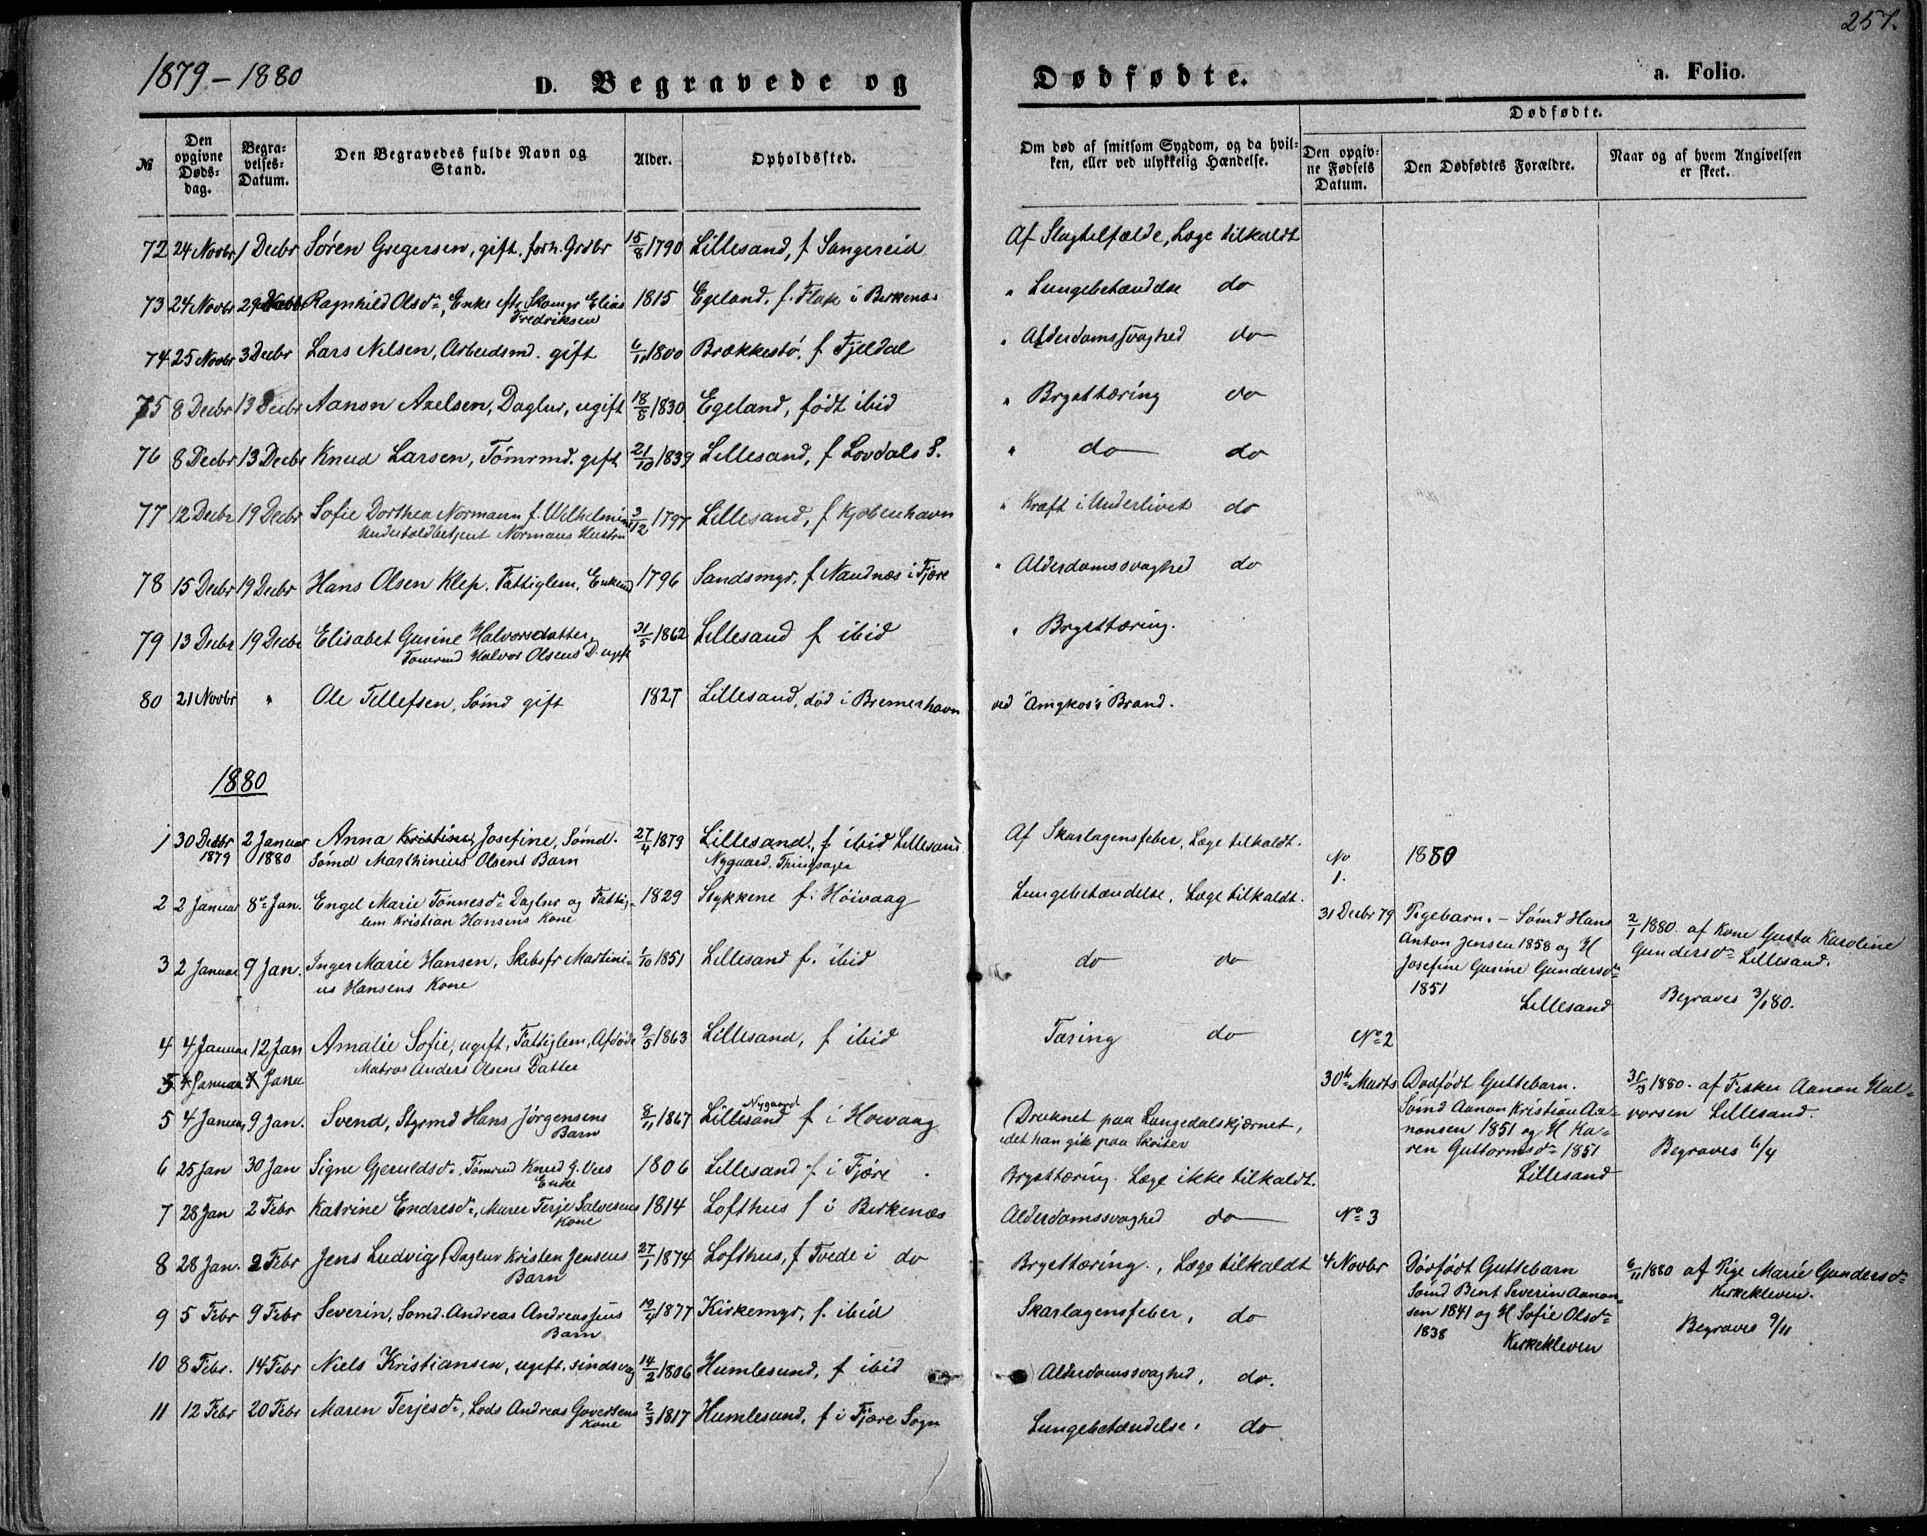 257.
1879 – 1880
D. Begravede og Dødfødte. a. Folio.
№
Den opgivne Døds-dag.
Begra-velses-Datum.
Den Begravedes fulde Navn og Stand.
Alder.
Opholdssted.
Om død af smitsom Sygdom, og da hvil-ken, eller ved ulykkelig Hændelse.
Dødfødte.
Den opgiv-ne Fødsels Datum.
Den Dødfødtes Forældre.
Naar og af hvem Angivelsen er skeet.
72 24 Novbr 1 Decbr Søren Gregersen, gift, forh. Grdbr 15/8 1790 Lillesand, f Sangereid Af Slagtilfælde, Læge tilkaldt
73 24 Novbr 29 Ragnhild Olsdr, Enke eftr Skomgr Elias 1815 Egeland, f. Flak i Birkenæs " Lungebetændelse do
Fredriksen
74 25 Novbr 3 Decbr Lars Nilsen, Arbeidsmd. gift 6/11 1800 Brækkestø, f Fjeldal " Alderdomssvaghed do
75 8 Decbr 13 Decbr Aanon Axelsen, Daglnr, ugift 18/8 1830 Egeland, født ibid " Brysttæring do
76 8 Decbr 13 Decbr Knud Larsen, Tømrmd. gift 21/10 1839 Lillesand, f Lovdals S. " do do
77 12 Decbr 19 Decbr Sofie Dorthea Normann f. Wilhelmine 3/12 1797 Lillesand, f Kjøbenhavn " Kræft i Underlivet do
Normans Hustru
78 15 Decbr 19 Decbr Hans Olsen Klep. Fattiglem, Enkemd 1796 Sandsmyr, f Nandnæs i Fjære " Alderdomssvaghed do
79 13 Decbr 19 Decbr Elisabet Gusine Halvorsdatter, 31/5 1862 Lillesand f ibid " Brysttæring.
Tømrmd Halvor Olsens D. ugift
80 21 Novbr " Ole Tellefsen, Sømd gift 1827 Lillesand, død i Bremerhavn ved "Amgkos's Brand.
1880
1 30 Decbr 2 Januar Anna Kristine, Josefine, Sømd. 27/4 1879 Lillesand, f ibid Lillesand Af Skarlagensfeber, Læge tilkaldt.
1879 1880 Sømd Marthinius Olsens Barn Nygaard. Thingsager
2 2 Januar 8de Jan. Engel Marie Tønnesdr Daglnr og Fattig- 1829 Stykkene f. Høivaag Lungebetændelse, Læge tilkaldt.
lem Kristian Hansens Kone
3 2 Januar 9 Jan. Inger Marie Hansen, Skibsfr Martini- 6/10 1851 Lillesand f. ibid do do
us Hansens Kone
4 4 Januar 12 Jan Amalie Sofie, ugift, Fattiglem, Afdøde 9/5 1863 Lillesand, f ibid Tæring do
Matros Anders Olsens Datter
5 4 Januar
5 4 Januar 9 Jan. Svend, Styrmd Hans Jørgensens 8/11 1867 Lillesand f i Høivaag Druknet paa Langedalskjærnet,
Barn Nygaard idet han gik paa Skøiter
6 25 Jan 30 Jan Signe Gjeruldsdr. Tømrmd Knud G. Ves 1806 Lillesand f i Fjære Brysttæring. Læge ikke tilkaldt.
Enke
7 28 Jan 2 Febr Katrine Endresdr, Murer Terje Salvesens 1814 Lofthus f i Birkenæs Alderdomssvaghed do
Kone
8 28 Jan. 2 Febr Jens Ludvig, Daglnr Kristen Jensens 27/1 1874 Lofthus, f Tvede i do Brysttæring, Læge tilkaldt
Barn
9 5 Febr 9 Febr Severin, Sømd. Andreas Andreassens 19/4 1877 Kirkemyr, f. ibid Skarlagensfeber, do
Barn
10 8 Febr. 14 Febr Niels Kristiansen, ugift, sindsvag 14/2 1806 Humlesund, f ibid Alderdomssvaghed, do.
11 12 Febr 20 Febr Maren Terjesdr, Lods Andreas Govertsens 2/3 1817 Humlesund, f i Fjære Sogn Lungebetændelse. do
Kone
No 1. 1880
31 Decbr 79 Pigebarn. – Sømd Hans 2/1 1880. af Kone Gusta Karoline
Anton Jensen 1858 og H Gundersdr Lillesand.
Josefine Gusine Gundersdr
1851 Begraves 3/1 80.
Lillesand
No 2
30te Marts Dødfødt Guttebarn. 31/3 1880. af Fisker Aanon Hal-
Sømd Aanon Kristian Aa- vorsen Lillesand.
nonsen 1851 og H Ka- Begraves 6/4
ren Guttormsdr 1851
Lillesand
No 3
4 Novbr Dødfødt Guttebarn 6/11 1880 af Pige Marie Gundersdr
Sømd Bent Severin Aanon- Kirkekleven.
sen 1841 og H Sofie Olsdr
1838 Begraves 9/11
Kirkekleven